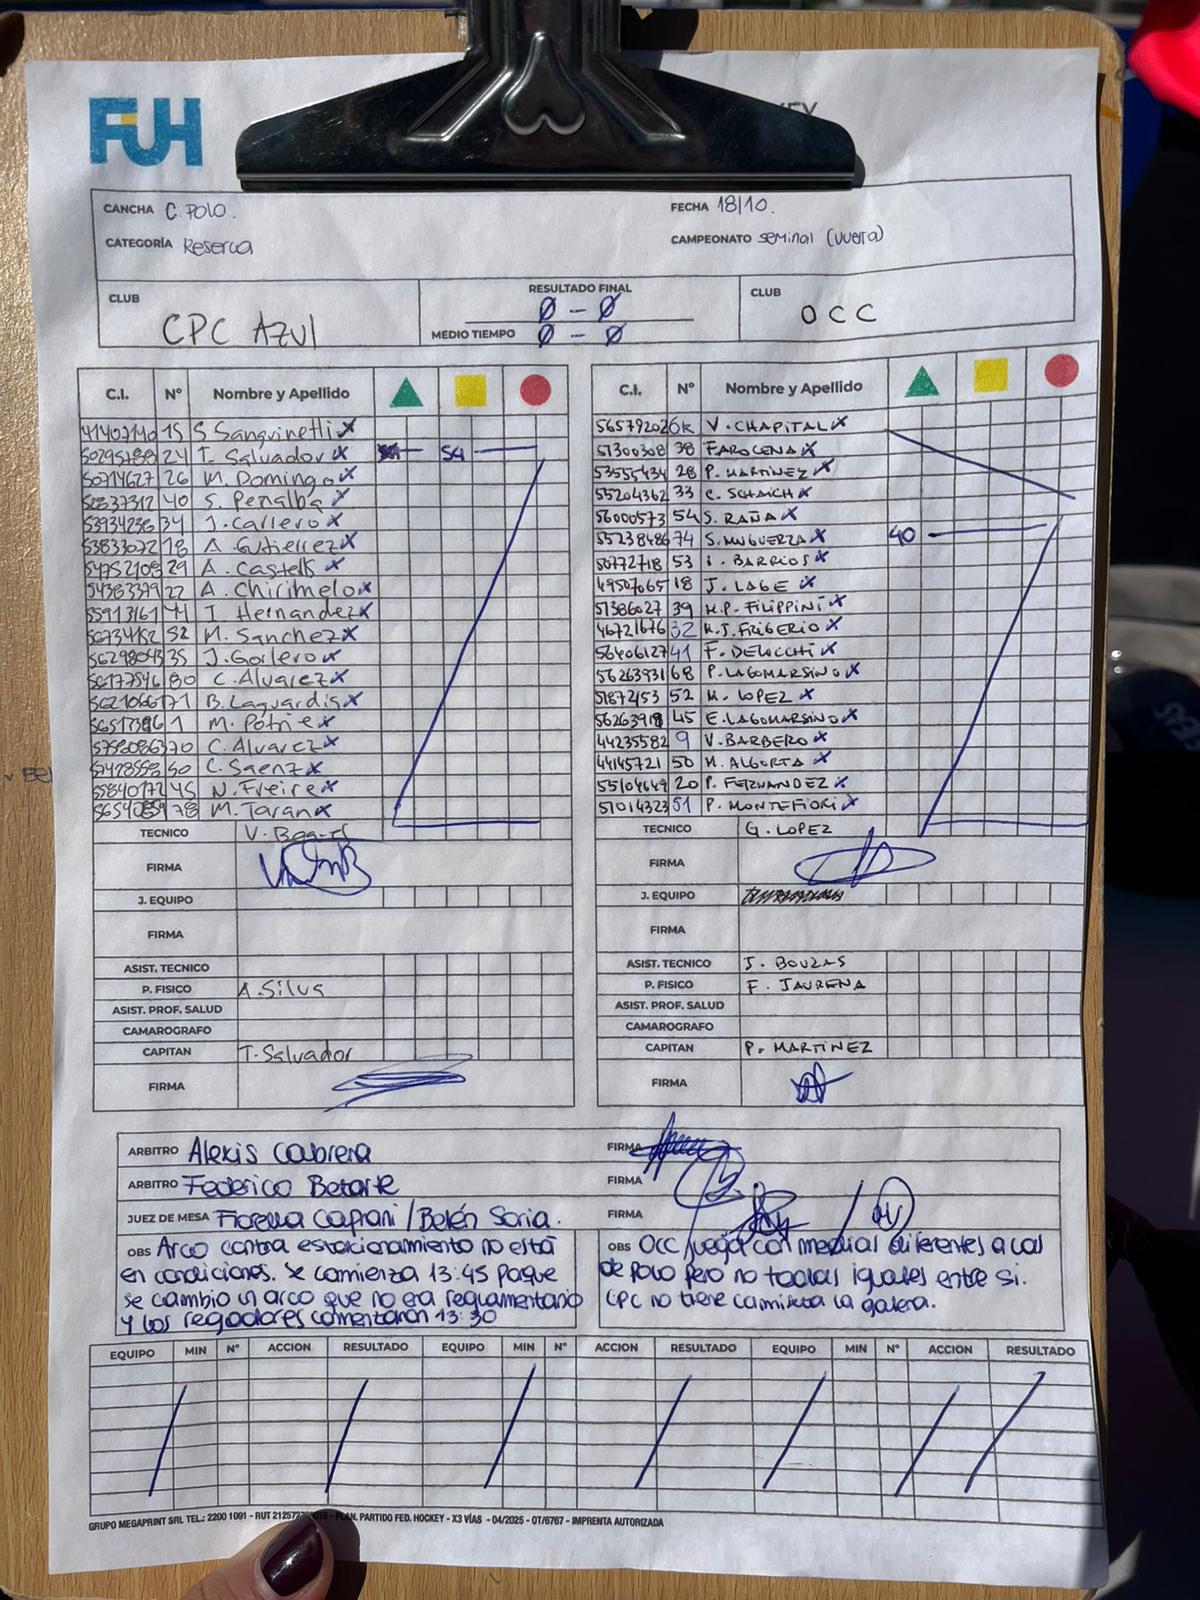 FUH
CANCHA C. POLO.
FECHA 18/10.
CATEGORÍA Reserva
CAMPEONATO seminal (vuelta)
CLUB CPC AZUL
RESULTADO FINAL 0 - 0
MEDIO TIEMPO 0 - 0
CLUB OCC
C.I. Nº Nombre y Apellido
15 S Sanguinetti x
24 T. Salvador x 54
26 M. Domingo x
40 S. Peñalba x
34 J. Carrero x
18 A. Gutierrez x
29 A. Castells x
22 A. Chirimelo x
I. Hernandez x
52 M. Sanchez x
35 J. Gorlero x
80 C. Alvarez x
71 B. Laguardia x
1 M. Potrie x
70 C. Alvarez x
50 C. Saenz x
45 N. Freire x
78 M. Taran x
TECNICO V.
FIRMA
J. EQUIPO
FIRMA
ASIST. TECNICO
P. FISICO A. Silva
ASIST. PROF. SALUD
CAMAROGRAFO
CAPITAN T. Salvador
FIRMA
C.I. Nº Nombre y Apellido
56579202 V. CHAPITAL x
51300308 38 FAROCENA x
53555434 28 P. MARTINEZ x
55204362 33 C. SCHAICH x
56000573 54 S. RAÑA x
55238486 74 S. MUGUERZA x 40
50772718 53 I. BARRIOS x
49507665 18 J. LAGE x
51386027 39 M.P. FILIPPINI x
46721676 32 M.J. FRIGERIO x
56406127 41 F. DELUCCHI x
56263931 68 P. LAGOMARSINO x
51872453 52 M. LOPEZ x
45 E. LAGOMARSINO x
44235582 9 V. BARBERO x
44145721 50 M. ALGORTA x
55104649 20 P. FERNANDEZ x
51014323 51 P. MONTEFIORI x
TECNICO G. LOPEZ
FIRMA
J. EQUIPO
FIRMA
ASIST. TECNICO J. BOUZAS
P. FISICO F. JAURENA
ASIST. PROF. SALUD
CAMAROGRAFO
CAPITAN P. MARTINEZ
FIRMA
ARBITRO Alexis Cabrera FIRMA
ARBITRO Federico Betarte FIRMA
JUEZ DE MESA Fiorella Caprani / Belén Soria. FIRMA
OBS Arco contra estacionamiento no está
en condiciones. Se comienza 13:45 porque
se cambio un arco que no era reglamentario
y los regadores comentaron 13:30
OBS OCC juega con medias diferentes a las
de Polo pero no todas iguales entre si.
CPC no tiene camiseta la golera.
EQUIPO MIN Nº ACCION RESULTADO EQUIPO MIN Nº ACCION RESULTADO EQUIPO MIN Nº ACCION RESULTADO
GRUPO MEGAPRINT SRL TEL.: 2200 1091 - RUT - PLAN. PARTIDO FED. HOCKEY - X3 VÍAS - 04/2025 - OT/6767 - IMPRENTA AUTORIZADA